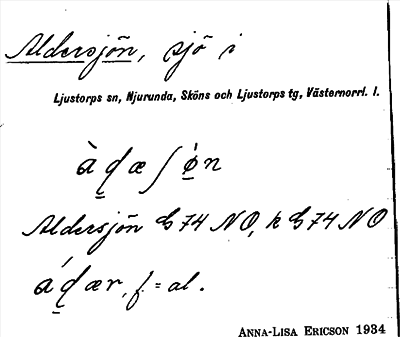 Aldersjön, sjö i
Ljustorps sn, Njurunda, Sköns och Ljustorps tg, Västernorrl. l.
Aldersjön G 74 NO, k G 74 NO
f. = al.
ANNA-LISA ERICSON 1934